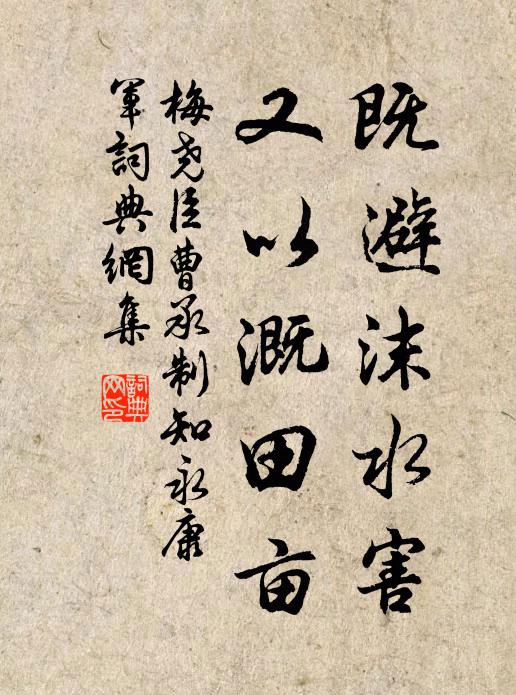 既避沫水害
又以溉田亩
梅尧臣曹承制知永康
軍詞典網集
詞典网印